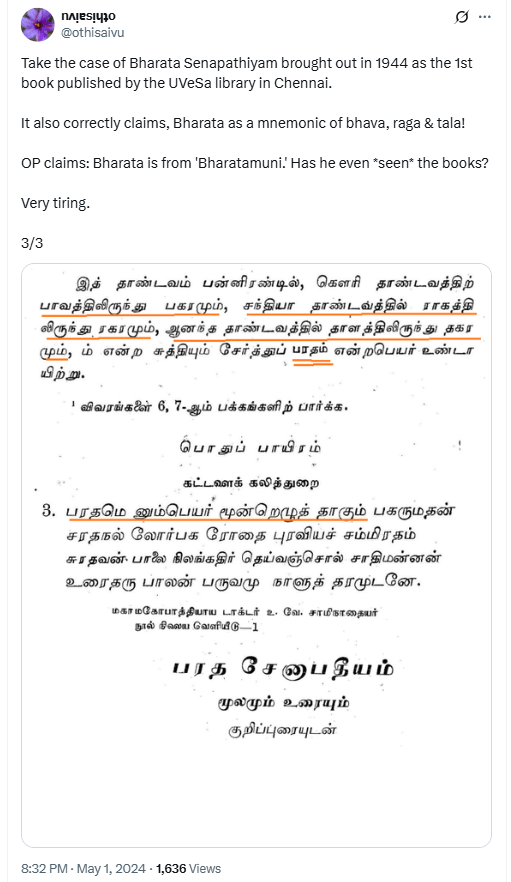 othisaivu
@othisaivu
Take the case of Bharata Senapathiyam brought out in 1944 as the 1st
book published by the UVeSa library in Chennai.
It also correctly claims, Bharata as a mnemonic of bhava, raga & tala!
OP claims: Bharata is from 'Bharatamuni.' Has he even *seen* the books?
Very tiring.
3/3
இத் தாண்டவம் பன்னிரண்டில், கௌரி தாண்டவத்திற்
பாவத்திலிருந்து பகரமும், சந்தியா தாண்டவத்தில் ராகத்தி
லிருந்து ரகரமும், ஆனந்த தாண்டவத்தில் தாளத்திலிருந்து தகர
மும், ம் என்ற சுத்தியும் சேர்த்துப் பரதம் என்றபெயர் உண்டா
யிற்று.
¹ விவரங்களை 6, 7-ஆம் பக்கங்களிற் பார்க்க.
பொதுப் பாயிரம்
கட்டளைக் கலித்துறை
3. பரதமெ னும்பெயர் மூன்றெழுத் தாகும் பகருமதன்
சரதநல் லோர்பக ரோதை புரவியச் சம்மிரதம்
சுரதவன் பாலை நிலங்கதிர் தெய்வஞ்சொல் சாதிமன்னன்
உரைதரு பாலன் பருவமு நாளுத் தரமுடனே.
மகாமகோபாத்தியாய டாக்டர் உ. வே. சாமிநாதையர்
நூல் நிலைய வெளியீடு—1
பரத சேனாபதீயம்
மூலமும் உரையும்
குறிப்புரையுடன்
8:32 PM · May 1, 2024 · 1,636 Views